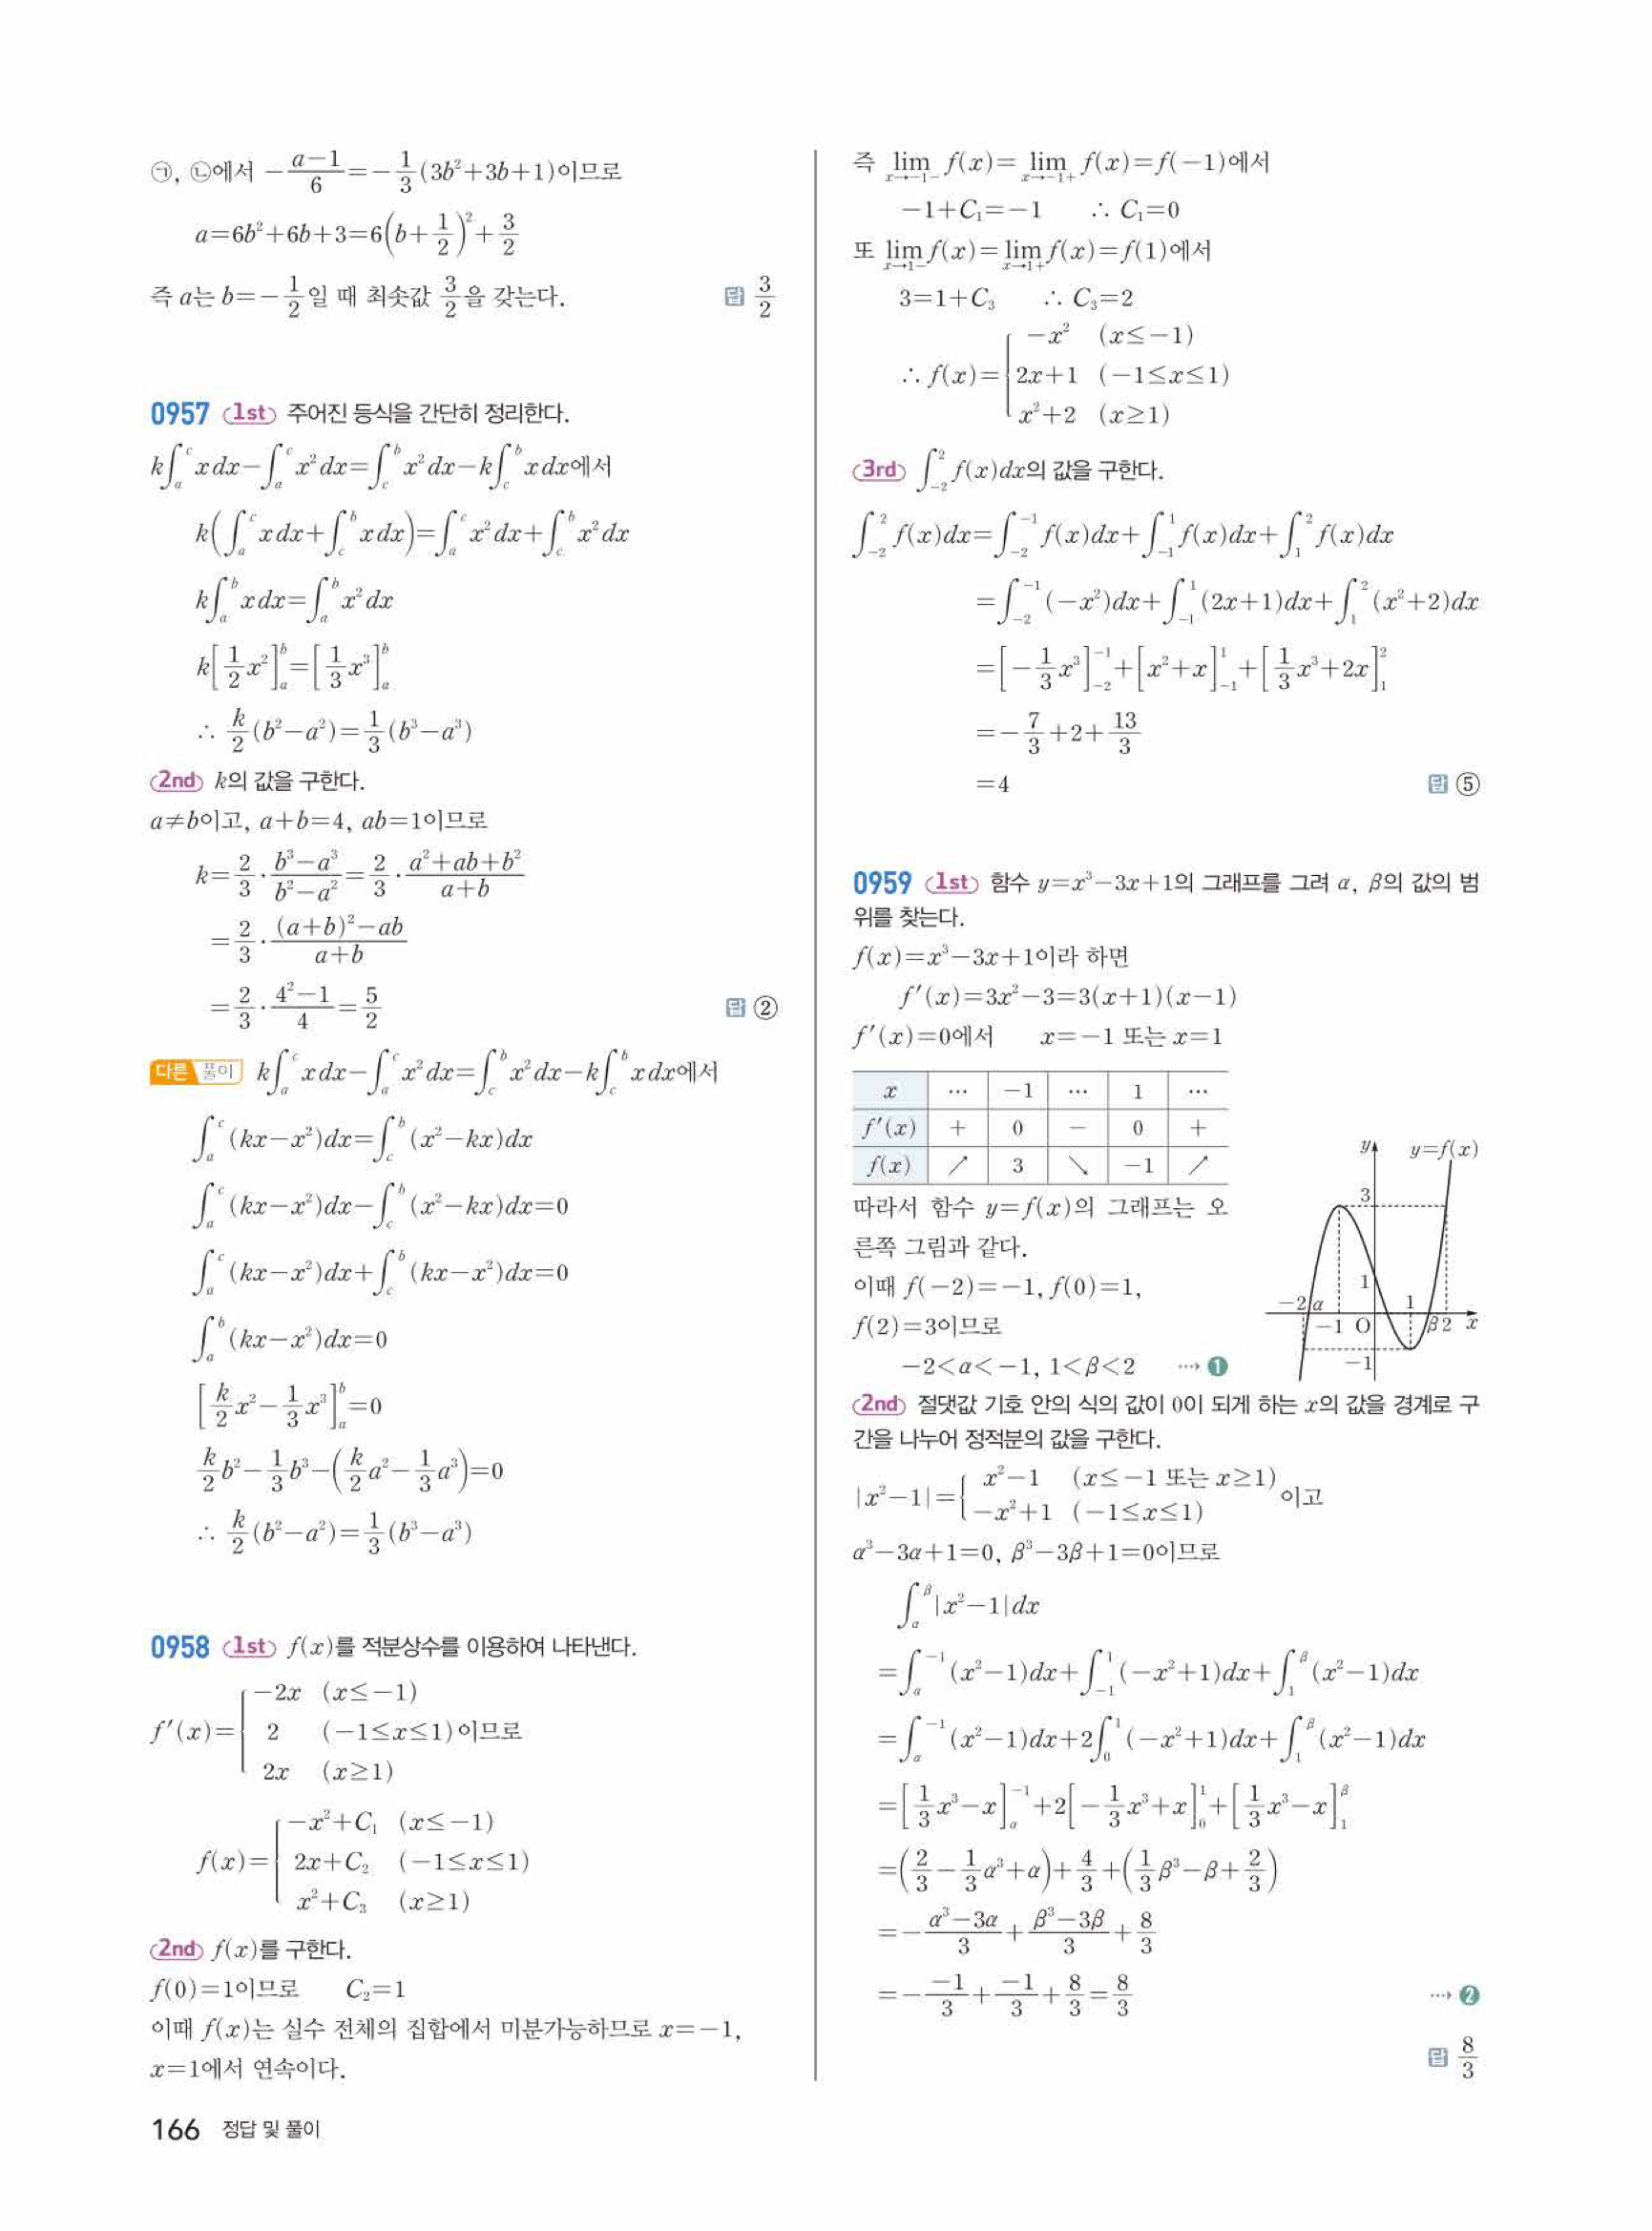 ㉠, ㉡에서 −(a−1)/6=−1/3(3b²+3b+1)이므로
a=6b²+6b+3=6(b+1/2)²+3/2
즉 a는 b=−1/2일 때 최솟값 3/2을 갖는다. 답 3/2
0957 1st 주어진 등식을 간단히 정리한다.
k∫_a^c x dx−∫_a^c x² dx=∫_c^b x² dx−k∫_c^b x dx에서
k(∫_a^c x dx+∫_c^b x dx)=∫_a^c x² dx+∫_c^b x² dx
k∫_a^b x dx=∫_a^b x² dx
k[1/2 x²]_a^b=[1/3 x³]_a^b
∴ k/2(b²−a²)=1/3(b³−a³)
2nd k의 값을 구한다.
a≠b이고, a+b=4, ab=1이므로
k=2/3·(b³−a³)/(b²−a²)=2/3·(a²+ab+b²)/(a+b)
=2/3·((a+b)²−ab)/(a+b)
=2/3·(4²−1)/4=5/2 답 ②
다른 풀이 k∫_a^c x dx−∫_a^c x² dx=∫_c^b x² dx−k∫_c^b x dx에서
∫_a^c (kx−x²)dx=∫_c^b (x²−kx)dx
∫_a^c (kx−x²)dx−∫_c^b (x²−kx)dx=0
∫_a^c (kx−x²)dx+∫_c^b (kx−x²)dx=0
∫_a^b (kx−x²)dx=0
[k/2 x²−1/3 x³]_a^b=0
k/2 b²−1/3 b³−(k/2 a²−1/3 a³)=0
∴ k/2(b²−a²)=1/3(b³−a³)
0958 1st f(x)를 적분상수를 이용하여 나타낸다.
−2x (x≤−1)
f′(x)={ 2 (−1≤x≤1)이므로
2x (x≥1)
−x²+C₁ (x≤−1)
f(x)={ 2x+C₂ (−1≤x≤1)
x²+C₃ (x≥1)
2nd f(x)를 구한다.
f(0)=1이므로 C₂=1
이때 f(x)는 실수 전체의 집합에서 미분가능하므로 x=−1,
x=1에서 연속이다.
즉 lim_{x→−1−} f(x)=lim_{x→−1+} f(x)=f(−1)에서
−1+C₁=−1 ∴ C₁=0
또 lim_{x→1−} f(x)=lim_{x→1+} f(x)=f(1)에서
3=1+C₃ ∴ C₃=2
−x² (x≤−1)
∴ f(x)={ 2x+1 (−1≤x≤1)
x²+2 (x≥1)
3rd ∫_{−2}^2 f(x)dx의 값을 구한다.
∫_{−2}^2 f(x)dx=∫_{−2}^{−1} f(x)dx+∫_{−1}^1 f(x)dx+∫_1^2 f(x)dx
=∫_{−2}^{−1} (−x²)dx+∫_{−1}^1 (2x+1)dx+∫_1^2 (x²+2)dx
=[−1/3 x³]_{−2}^{−1}+[x²+x]_{−1}^1+[1/3 x³+2x]_1^2
=−7/3+2+13/3
=4 답 ⑤
0959 1st 함수 y=x³−3x+1의 그래프를 그려 α, β의 값의 범
위를 찾는다.
f(x)=x³−3x+1이라 하면
f′(x)=3x²−3=3(x+1)(x−1)
f′(x)=0에서 x=−1 또는 x=1
x … −1 … 1 …
f′(x) + 0 − 0 +
f(x) ↗ 3 ↘ −1 ↗
따라서 함수 y=f(x)의 그래프는 오
른쪽 그림과 같다.
이때 f(−2)=−1, f(0)=1,
f(2)=3이므로
−2<α<−1, 1<β<2 ⋯→ ❶
y y=f(x)
3
1
−2 α 1
−1 O β 2 x
−1
2nd 절댓값 기호 안의 식의 값이 0이 되게 하는 x의 값을 경계로 구
간을 나누어 정적분의 값을 구한다.
|x²−1|={ x²−1 (x≤−1 또는 x≥1)
−x²+1 (−1≤x≤1) 이고
α³−3α+1=0, β³−3β+1=0이므로
∫_α^β |x²−1|dx
=∫_α^{−1} (x²−1)dx+∫_{−1}^1 (−x²+1)dx+∫_1^β (x²−1)dx
=∫_α^{−1} (x²−1)dx+2∫_0^1 (−x²+1)dx+∫_1^β (x²−1)dx
=[1/3 x³−x]_α^{−1}+2[−1/3 x³+x]_0^1+[1/3 x³−x]_1^β
=(2/3−1/3 α³+α)+4/3+(1/3 β³−β+2/3)
=−(α³−3α)/3+(β³−3β)/3+8/3
=−(−1)/3+(−1)/3+8/3=8/3 ⋯→ ❷
답 8/3
166 정답 및 풀이